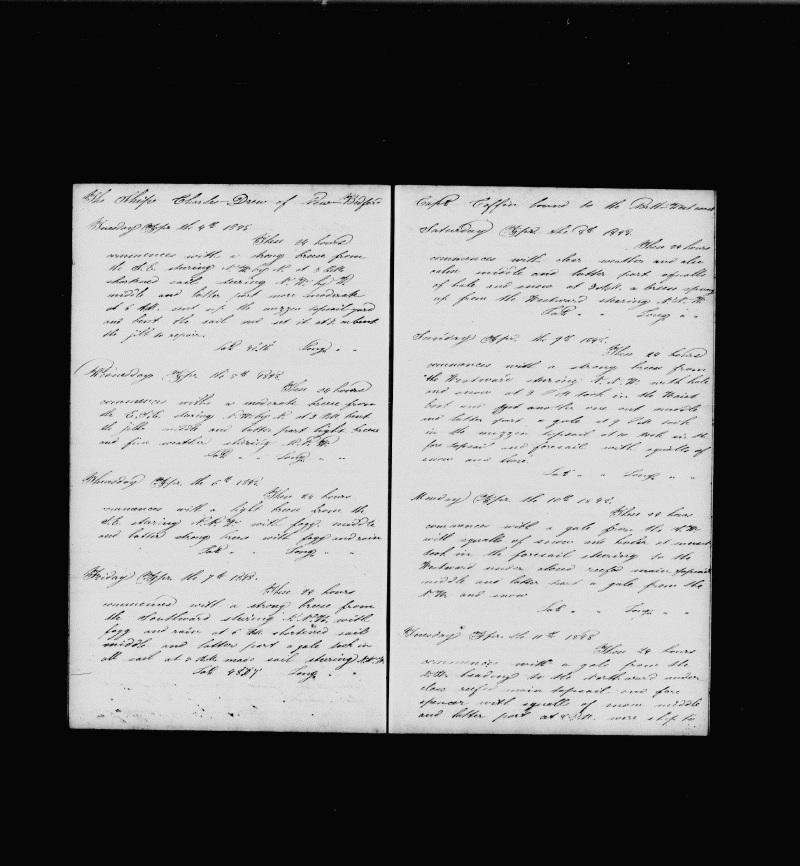 The Ship Charles Drew of New Bedford
Tuesday Apr. the 4th 1848
These 24 hours
commences with a strong breeze from
the S.E. stearing N.W. by N. at 3 P.M.
shortened sail stearing N.W. by W.
middle and latter part more moderate
at 6 A.M. sent up the mizzen topsail yard
and bent the sail and set it at unbent
the jibb to repair.
Lat Long " "
Wednesday Apr. the 5th 1848.
These 24 hours
commences with a moderate breeze from
the E.S.E. stearing N.W. by N. at 3 P.M. bent
the jibb middle and latter part light breeze
and fine weather stearing N.N.W.
Lat " " Long " "
Thursday Apr. the 6th 1848.
These 24 hours
commences with a light breeze from the
S.E. stearing N.N.W. with fogg middle
and latter strong breeze with fogg and rain
Lat " " Long " "
Friday Apr. the 7th 1848.
These 24 hours
commenced with a strong breeze from
the Southward stearing N.N.W. with
fogg and rain at 6 P.M. shortened sail
middle and latter part a gale took in
all sail at made sail stearing N.N.W.
Lat Long " "
Capt. Coffin bound to the
Saturday Apr. the 8th 1848.
These 24 hours
commences with clear weather and
calm middle and latter part squalls
of hale and snow at 3 A.M. a breeze sprung
up from the Westward stearing N.N.W.
Lat " " Long " "
Sunday Apr. the 9th 1848.
These 24 hours
commences with a strong breeze from
the Westward stearing N.N.W. with hale
and snow at 3 P.M. took in the Waist
boat and got another one out middle
and latter part a gale at 9 P.M. took
in the mizzen topsail at took in the
fore topsail and foresail with squalls of
snow and
Lat " " Long " "
Monday Apr. the 10th 1848.
These 24 hours
commences with a gale from the N.W.
with squalls of snow and at
took in the foresail stearing to the
Westward under close reefed main topsail
middle and latter part a gale from the
N.W. and snow
Lat " " Long " "
Tuesday Apr. the 11th 1848
These 24 hours
commences with a gale from the
heading to the Northward under
close reefed main topsail and fore
spencer with squalls of snow middle
and latter part at wore ship to